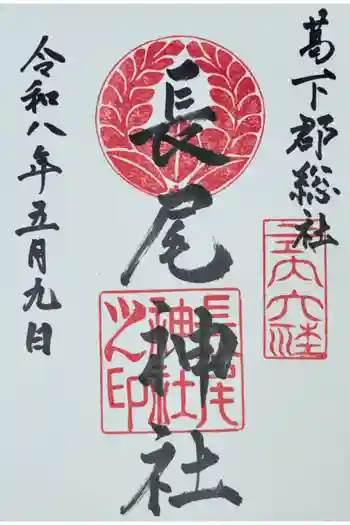 葛下郡総社
長尾神社
令和八年五月九日
式内大社
長尾
神社
之印